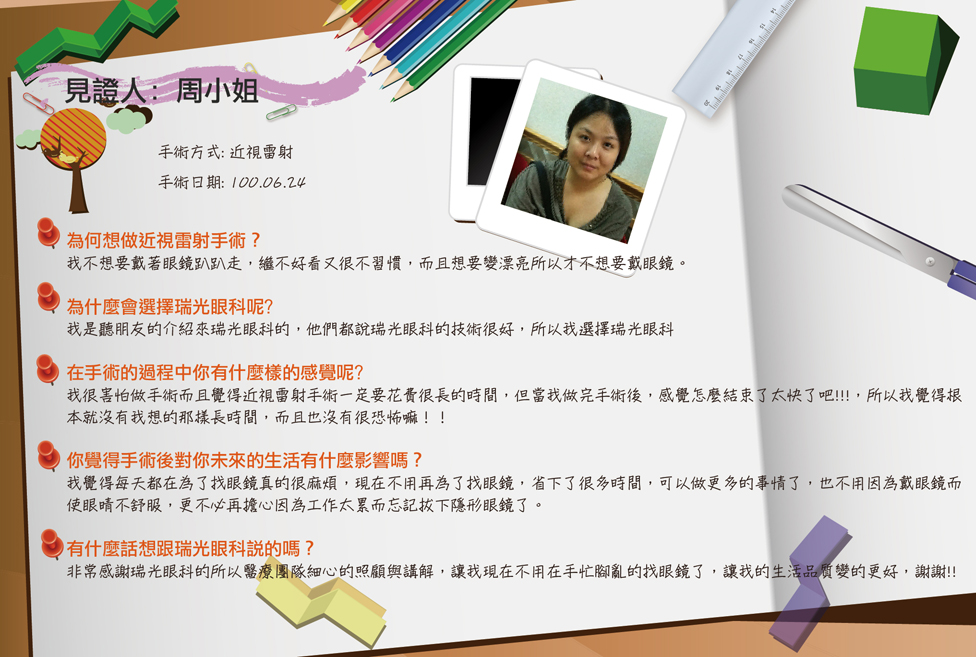 見證人: 周小姐
手術方式: 近視雷射
手術日期: 100.06.24
為何想做近視雷射手術？
我不想要戴著眼鏡趴趴走，繼不好看又很不習慣，而且想要變漂亮所以才不想要戴眼鏡。
為什麼會選擇瑞光眼科呢?
我是聽朋友的介紹來瑞光眼科的，他們都說瑞光眼科的技術很好，所以我選擇瑞光眼科
在手術的過程中你有什麼樣的感覺呢?
我很害怕做手術而且覺得近視雷射手術一定要花費很長的時間，但當我做完手術後，感覺怎麼結束了太快了吧!!!，所以我覺得根
本就沒有我想的那樣長時間，而且也沒有很恐怖嘛！！
你覺得手術後對你未來的生活有什麼影響嗎？
我覺得每天都在為了找眼鏡真的很麻煩，現在不用再為了找眼鏡，省下了很多時間，可以做更多的事情了，也不用因為戴眼鏡而
使眼睛不舒服，更不必再擔心因為工作太累而忘記拔下隱形眼鏡了。
有什麼話想跟瑞光眼科說的嗎？
非常感謝瑞光眼科的所以醫療團隊細心的照顧與講解，讓我現在不用在手忙腳亂的找眼鏡了，讓我的生活品質變的更好，謝謝!!